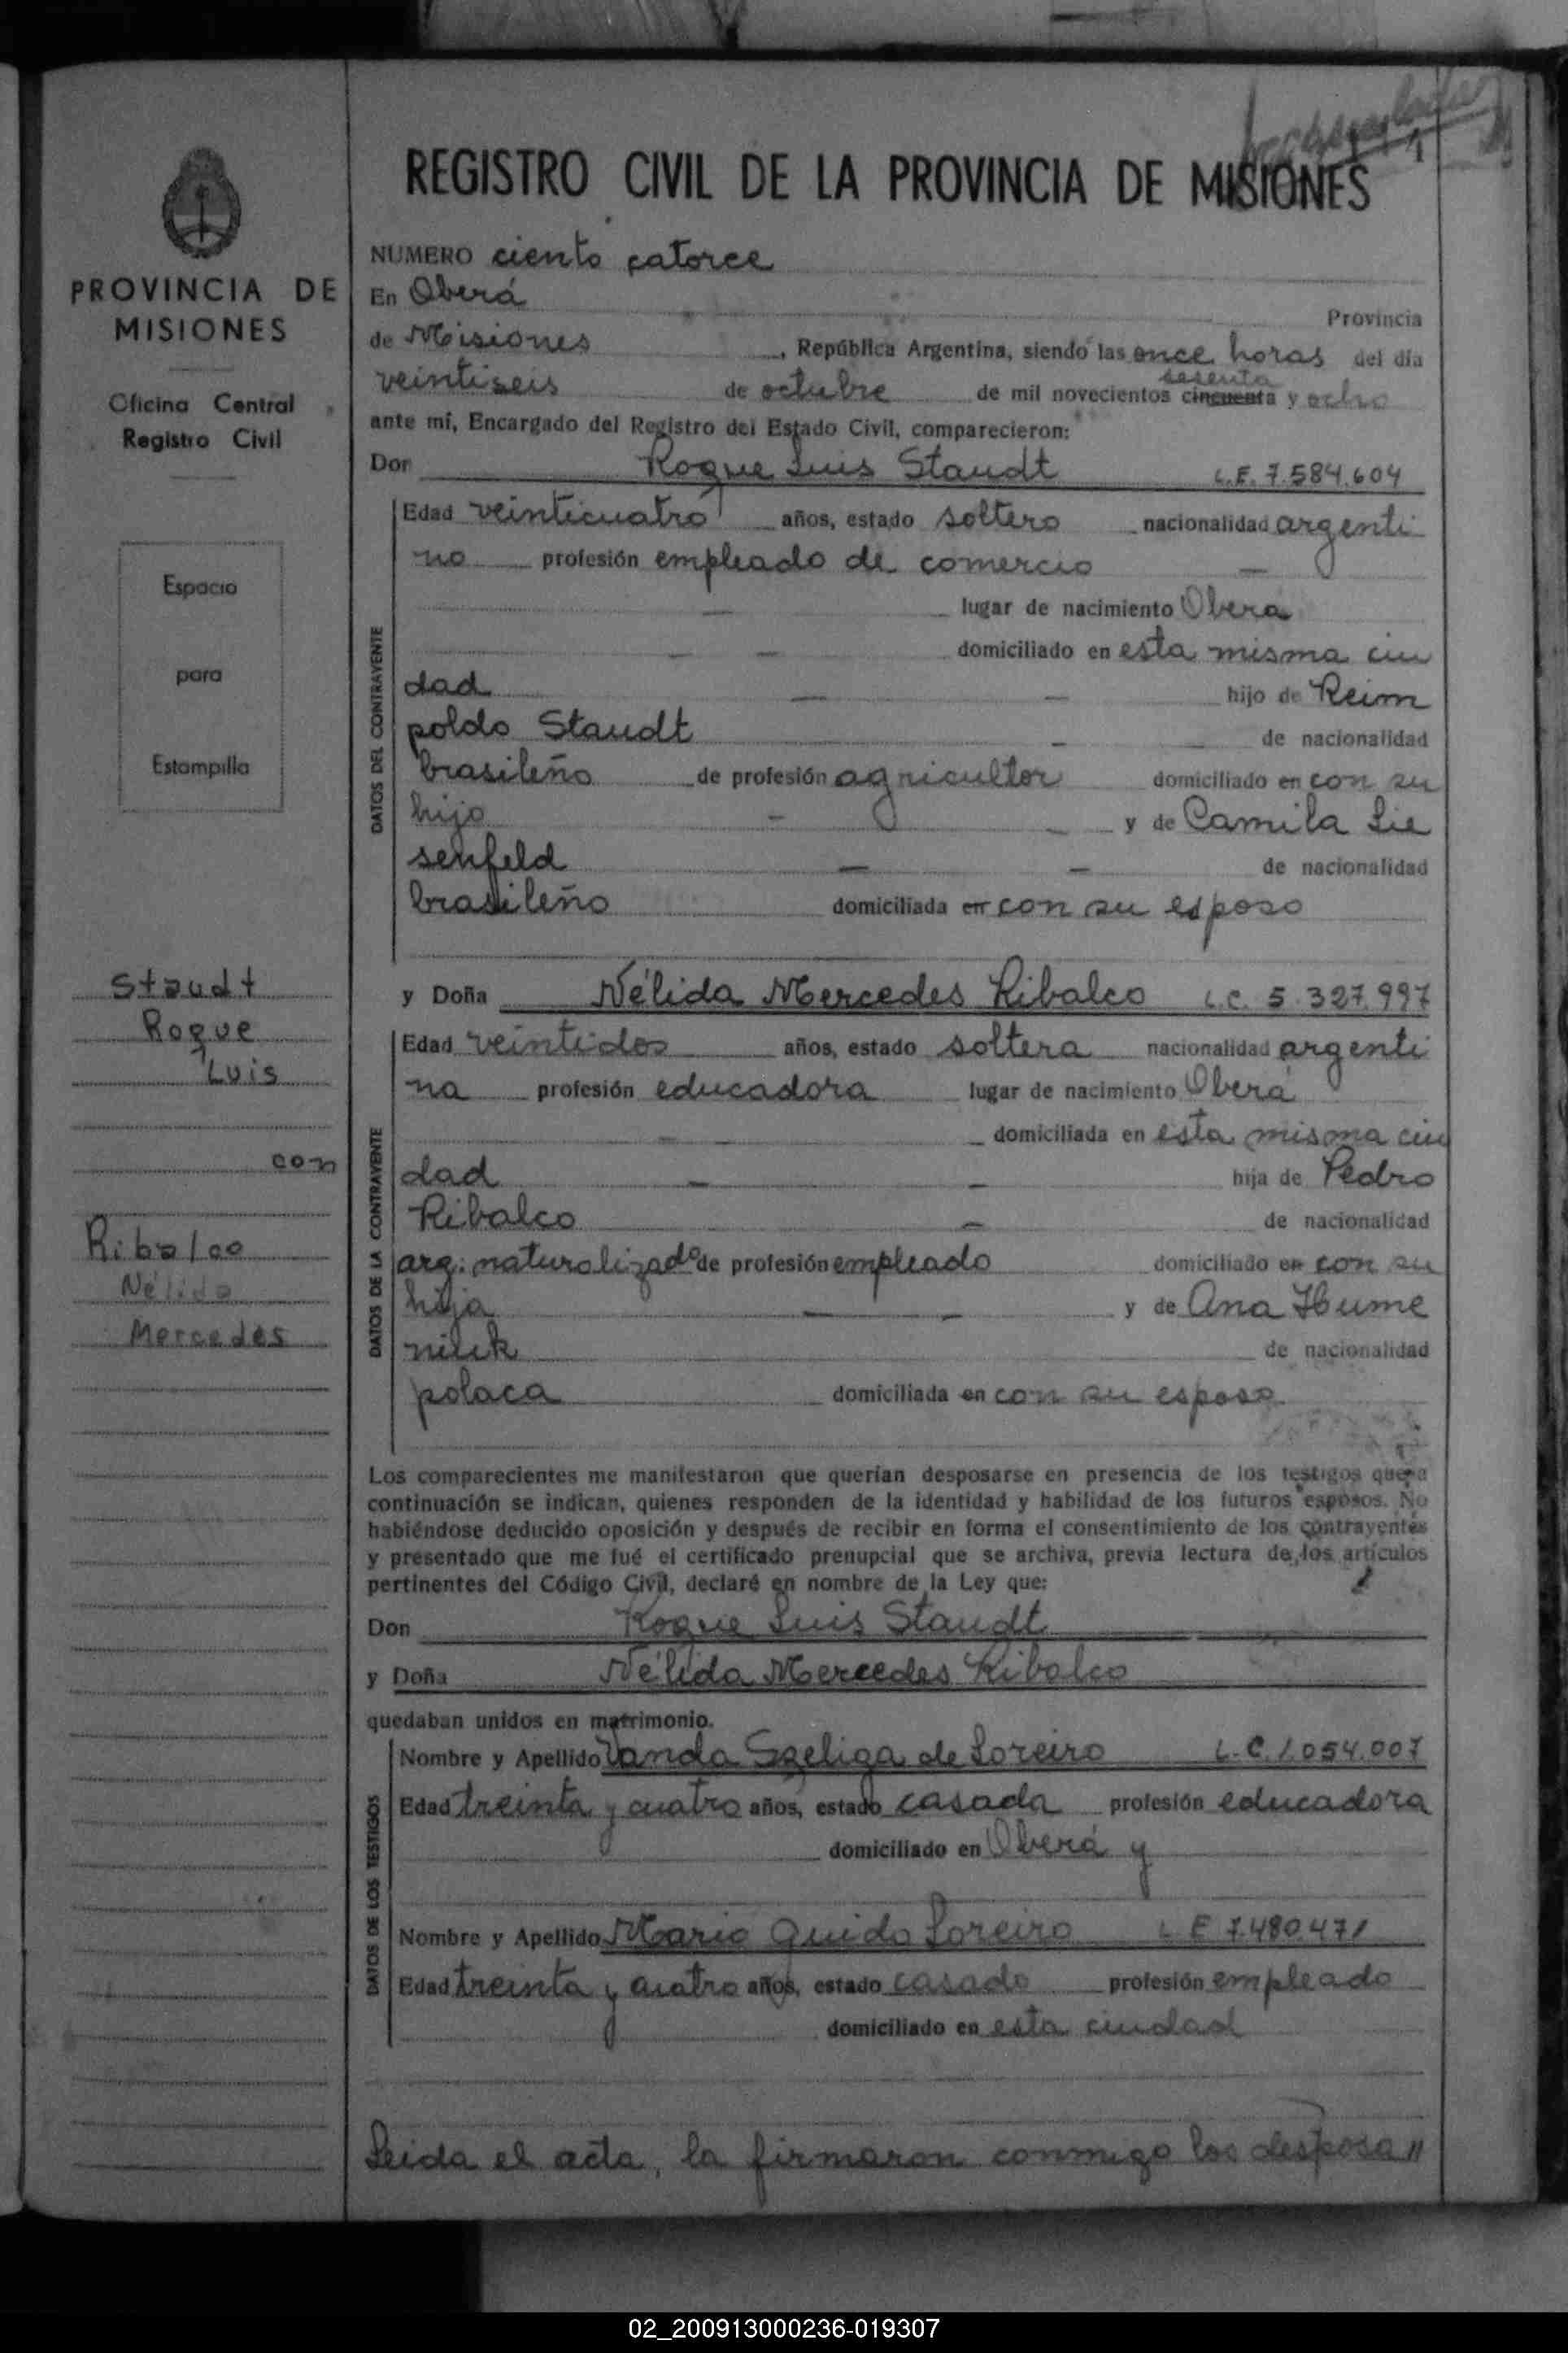 114
REGISTRO CIVIL DE LA PROVINCIA DE MISIONES
PROVINCIA DE
MISIONES
Oficina Central
Registro Civil
Espacio
para
Estampilla
Staudt
Roque
Luis
con
Ribalco
Nélida
Mercedes
NUMERO ciento catorce
En Oberá Provincia
de Misiones, República Argentina, siendo las once horas del día
sesenta
veintiseis de octubre de mil novecientos cincuenta y ocho
ante mí, Encargado del Registro del Estado Civil, comparecieron:
Don Roque Luis Staudt L.E. 7.584.604
DATOS DEL CONTRAYENTE
Edad veinticuatro años, estado soltero nacionalidad argenti
no profesión empleado de comercio —
— lugar de nacimiento Oberá
— — domiciliado en esta misma ciu
dad — — hijo de Reim
poldo Staudt — de nacionalidad
brasileño de profesión agricultor domiciliado en con su
hijo — — y de Camila Lie
senfeld — — de nacionalidad
brasileño domiciliada en con su esposo
y Doña Nélida Mercedes Ribalco L.C. 5.327.997
DATOS DE LA CONTRAYENTE
Edad veintidos años, estado soltera nacionalidad argenti
na profesión educadora lugar de nacimiento Oberá
— — domiciliada en esta misma ciu
dad — — hija de Pedro
Ribalco — de nacionalidad
arg. naturalizado de profesión empleado domiciliado en con su
hija — — y de Ana Hume
niuk de nacionalidad
polaca domiciliada en con su esposo
Los comparecientes me manifestaron que querían desposarse en presencia de los testigos que a
continuación se indican, quienes responden de la identidad y habilidad de los futuros esposos. No
habiéndose deducido oposición y después de recibir en forma el consentimiento de los contrayentes
y presentado que me fué el certificado prenupcial que se archiva, previa lectura de los artículos
pertinentes del Código Civil, declaré en nombre de la Ley que:
Don Roque Luis Staudt
y Doña Nélida Mercedes Ribalco
quedaban unidos en matrimonio.
DATOS DE LOS TESTIGOS
Nombre y Apellido Vanda Szeliga de Loreiro L.C. 1.054.007
Edad treinta y cuatro años, estado casada profesión educadora
domiciliado en Oberá y
Nombre y Apellido Mario Guido Loreiro L E 7.480.471
Edad treinta y cuatro años, estado casado profesión empleado
domiciliado en esta ciudad
Leida el acta, la firmaron conmigo los desposa //
02_200913000236-019307